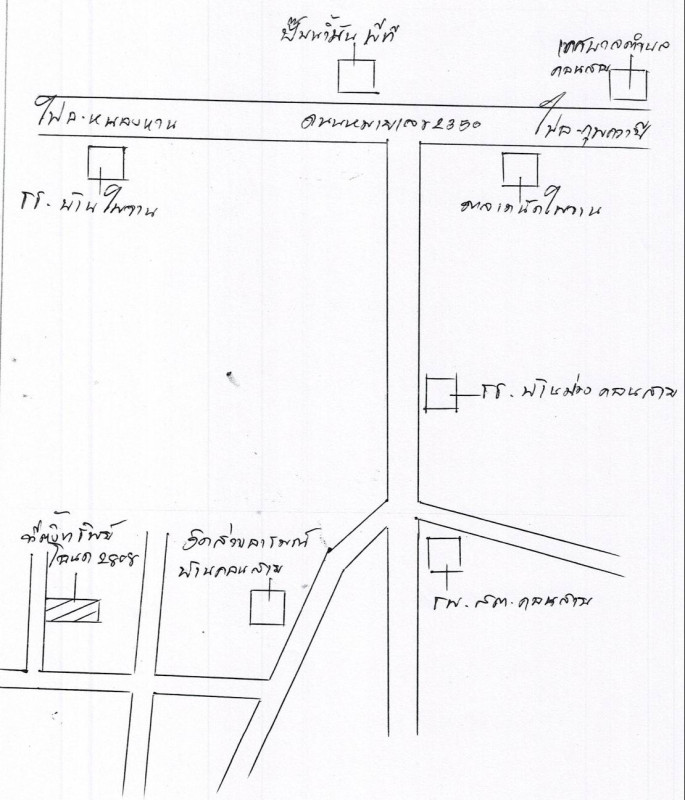 ปั๊มน้ำมัน พีที
เทศบาลตำบล
ดอนสาย
ไป อ.หนองหาน
ถนนหมายเลข 2350
ไป อ.กุมภวาปี
รร. บ้านไพจาน
ตลาดนัดไพจาน
รร. บ้านม่วง ดอนสาย
ที่ตั้งทรัพย์
โฉนด 2808
วัดสว่างอารมณ์
บ้านดอนสาย
รพ.สต. ดอนสาย